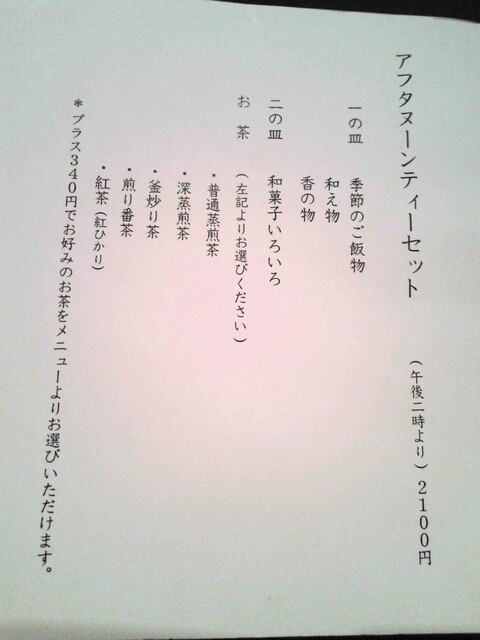 アフタヌーンティーセット （午後二時より）２１００円
一の皿 季節のご飯物
和え物
香の物
二の皿 和菓子いろいろ
お茶 （左記よりお選びください）
・普通蒸煎茶
・深蒸煎茶
・釜炒り茶
・煎り番茶
・紅茶（紅ひかり）
＊プラス３４０円でお好みのお茶をメニューよりお選びいただけます。